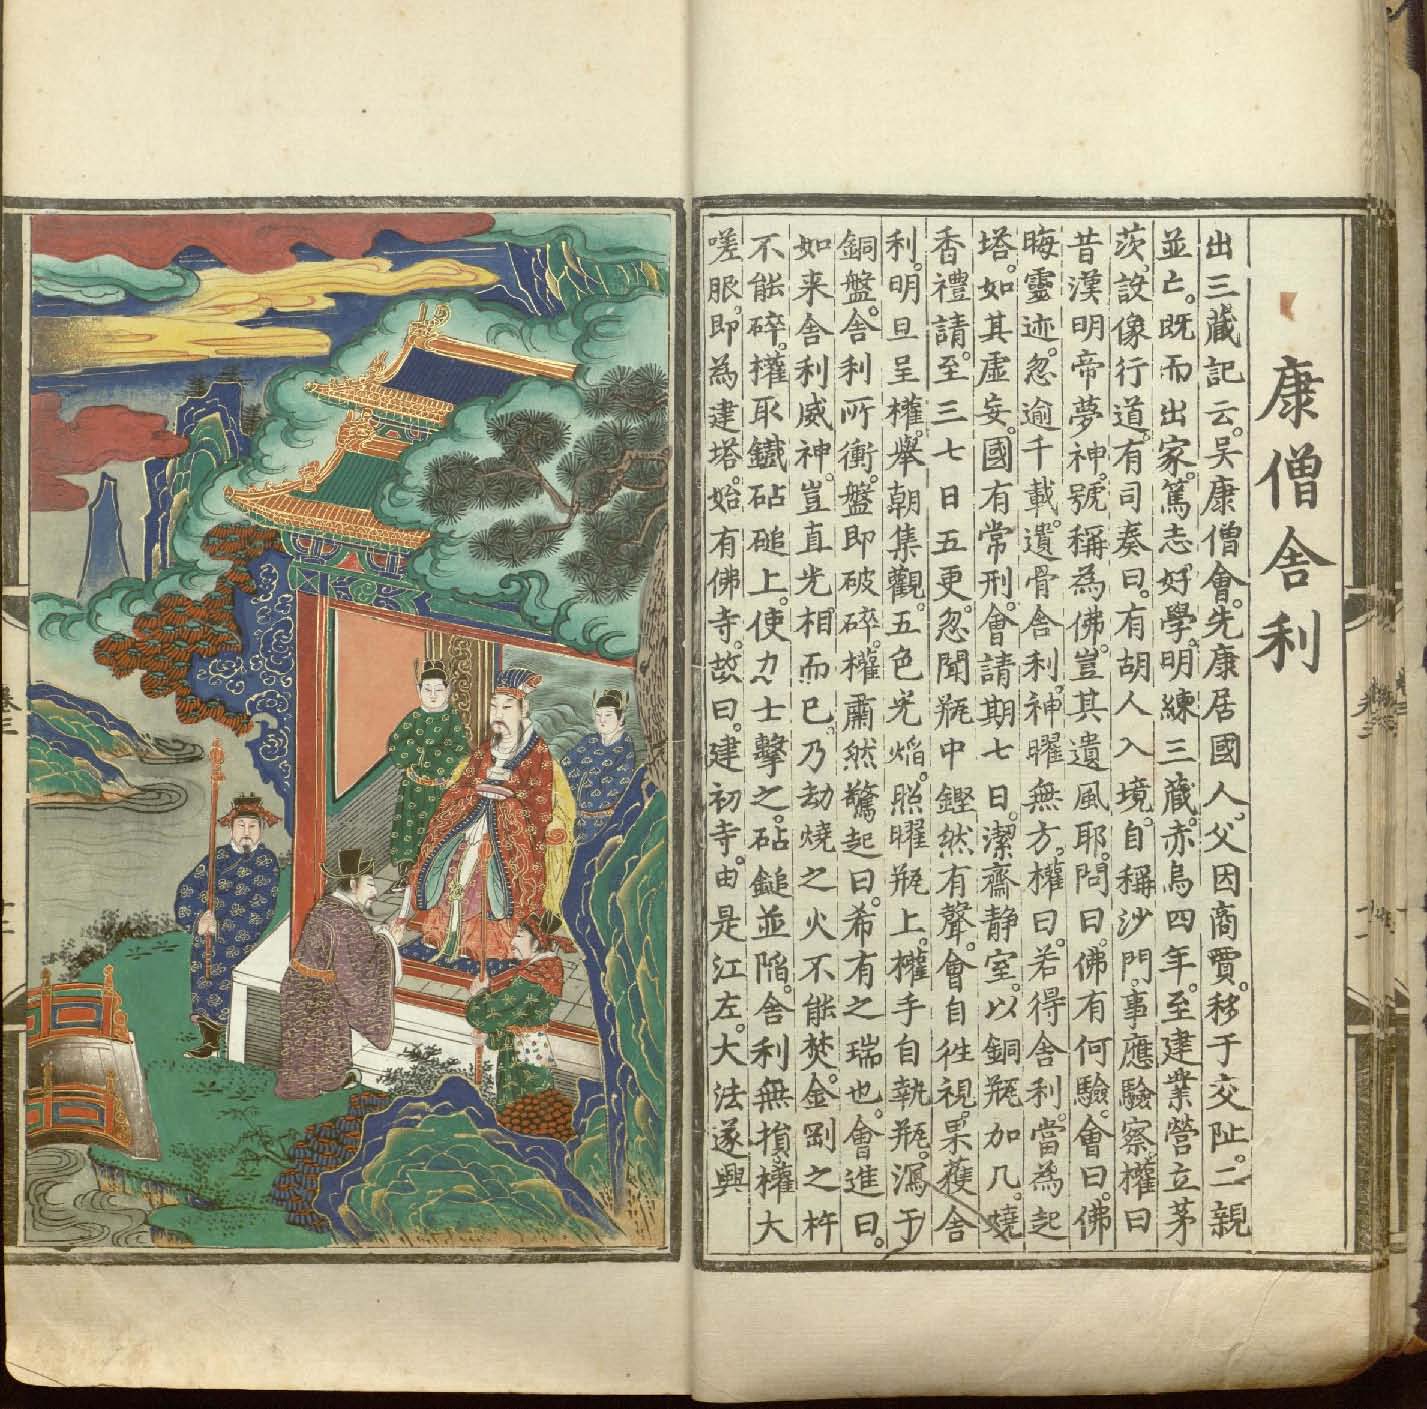 康僧舎利
出三藏記云。吴康僧會。先康居國人。父因商賈。移于交阯。二親
並亡。既而出家。篤志好學。明練三藏。赤烏四年。至建業。營立茅
茨。設像行道。有司奏曰。有胡人入境。自稱沙門。事應驗察。權曰
昔漢明帝夢神。號稱為佛。豈其遺風耶。問曰。佛有何驗。會曰。佛
晦靈迹。忽逾千載。遺骨舎利。神曜無方。權曰。若得舎利。當為起
塔。如其虛妄。國有常刑。會請期七日。潔齋静室。以銅瓶加几。燒
香禮請。至三七日五更。忽聞瓶中鏗然有聲。會自徃視。果蔓舎
利。明旦呈權。舉朝集觀。五色光焰。照曜瓶上。權手自執瓶。瀉于
銅盤。舎利所衝。盤即破碎。權肅然驚起曰。希有之瑞也。會進曰。
如来舎利威神。豈直光相而已。乃劫燒之火不能焚。金剛之杵
不能碎。權取鐵砧磓上。使力士擊之。砧鎚並陷。舎利無損。權大
嗟服。即為建塔。始有佛寺。故曰。建初寺。由是江左。大法遂興
卷三
十二